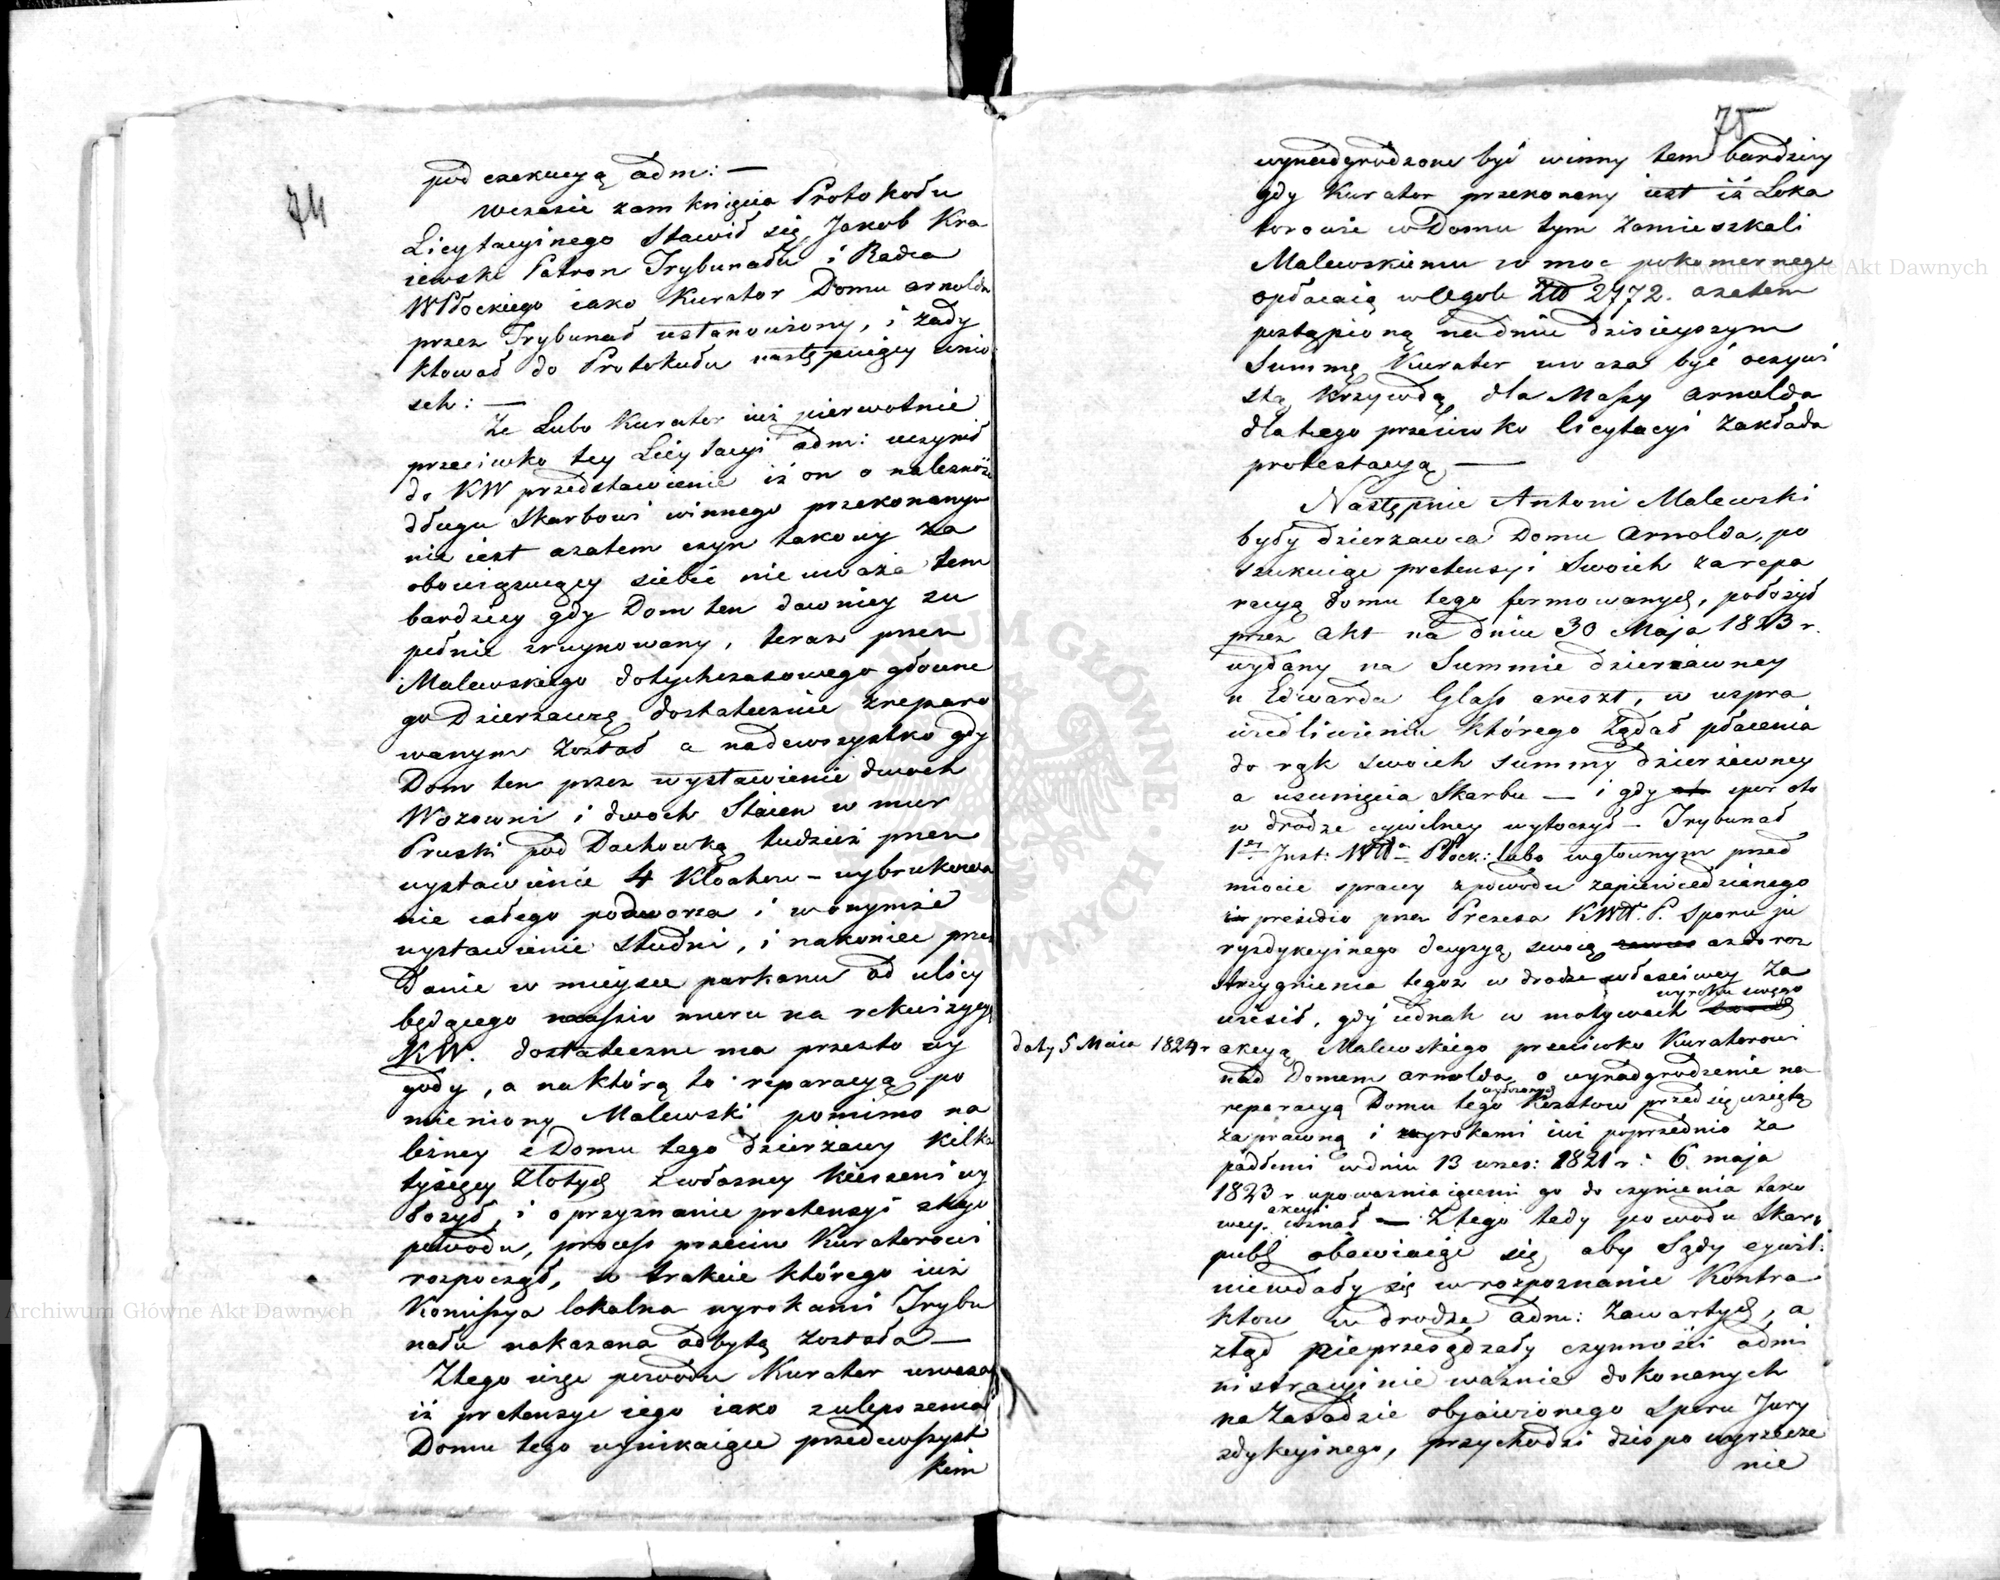 74
pod exekucyą adm: —
Wczasie zamknięcia Protokołu
Licytacyinego Stawił się Jakob Kra
iewski Patron Trybunału i Radca
WPłockiego iako Kurator Domu Arnolda
przez Trybunał ustanowiony, i zady
ktował do Protokułu następuiący wnio
sek: —
Ze Lubo Kurator iuż pierwotnie
przeciwko tey Licytacyi adm: uczynił
do KW przedstawienie iż on o należnośc
długu Skarbowi winnego przekonanym
nie iest azatem czyn takowy za
obowiązuiący siebie nie uważa tem
bardziey gdy Dom ten dawniey zu
pełnie zruynowany, teraz przez
Malewskiego dotychczasowego główne
go Dzierzawcę dostatecznie zreparo
wanym został a nadewszystko gdy
Dom ten przez wystawienie dwoch
Wozowni i dwoch Staien w mur
Pruski pod Dachowką tudzież przez
wystawienie 4 Kloaków – wybrukowa
nie całego podworza i wonymże
wystawienie studni, i nakoniec prze
danie w mieysce parkanu od ulicy
będącego massiv muru na rekwizycyą
KW. dostateczne ma przeto wy
gody, a na którą to reparacyą po
mieniony Malewski pomimo na
leżney z Domu tego dzierżawy kilka
tysięcy Złotych z własney kieszeni wy
łożył, i o przyznanie pretensyi z tego
powodu, process przeciw Kuratorowi
rozpoczął, w trakcie którego iuż
Komissya lokalna wyrokami Trybu
nału nakazana odbytą została —
Ztego więc powodu Kurator uważa
iż pretensye iego iako z ulepszenia
Domu tego wynikaiące przedewszyst
kim
75
wynadgrodzone być winny tem bardziey
gdy Kurator przekonany iest iż Loka
torowie w Domu tym zamieszkali
Malewskiemu w moc pokomernego
opłacaią wogole Złł 2772. azatem
postąpioną na dniu dzisieyszym
Summę Kurator uważa być oczywi
stą Krzywdą dla Massy Arnolda
dla tego przeciwko licytacyi zakłada
protestacyą —
Następnie Antoni Malewski
były dzierzawca Domu Arnolda, po
szukuiąc pretensyi Swoich za repa
racyą domu tego formowanych, położył
przez Akt na dniu 30 Maja 1823 r.
wydany na Summie dzierżawney
u Edwarda Glass areszt, w uspra
wiedliwieniu którego żądał płacenia
do rąk swoich summy dzierżawney
a usunięcia Skarbu — i gdy spor oto
w drodze cywilney wytoczył – Trybunał
1ey Inst: WWa Płock: lubo w głównym przed
miocie sprawy z powodu zapiewiedzianego
przez Prezesa KWW. P. Sporu ju
rysdykcyinego decyzyą swoią aż do roz
strzygnienia tegoż w drodze właściwey za
wiesił, gdy iednak w motywach wyroku swego
daty 5 Maia 1824 r akcyą Malewskiego przeciwko Kuratorowi
nad Domem Arnolda o wynadgrodzenie na
reparacyą Domu tego wyłożonych Kosztow przedsięwziętą
za prawną i wyrokami iuż poprzednio za
padłemi w dniu 13 wrześ: 1821 r: 6 maja
1823 r upoważniaiącemi go do czynienia tako
wey akcyi uznał — Ztego tedy powodu Skarb
publ obawiaiąc się aby Sądy cywil:
niewdały się w rozpoznanie Kontra
ktow w drodze adm: Zawartych, a
ztąd nieprzesądzały czynności admi
nistracyinie ważnie dokonanych
na zasadzie objawionego sporu Jury
zdykcyinego, przychodzi dziś po wyrzecze
nie